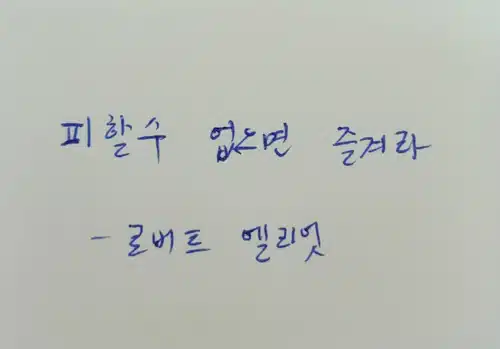 피할수 없으면 즐겨라
- 로버트 엘리엇